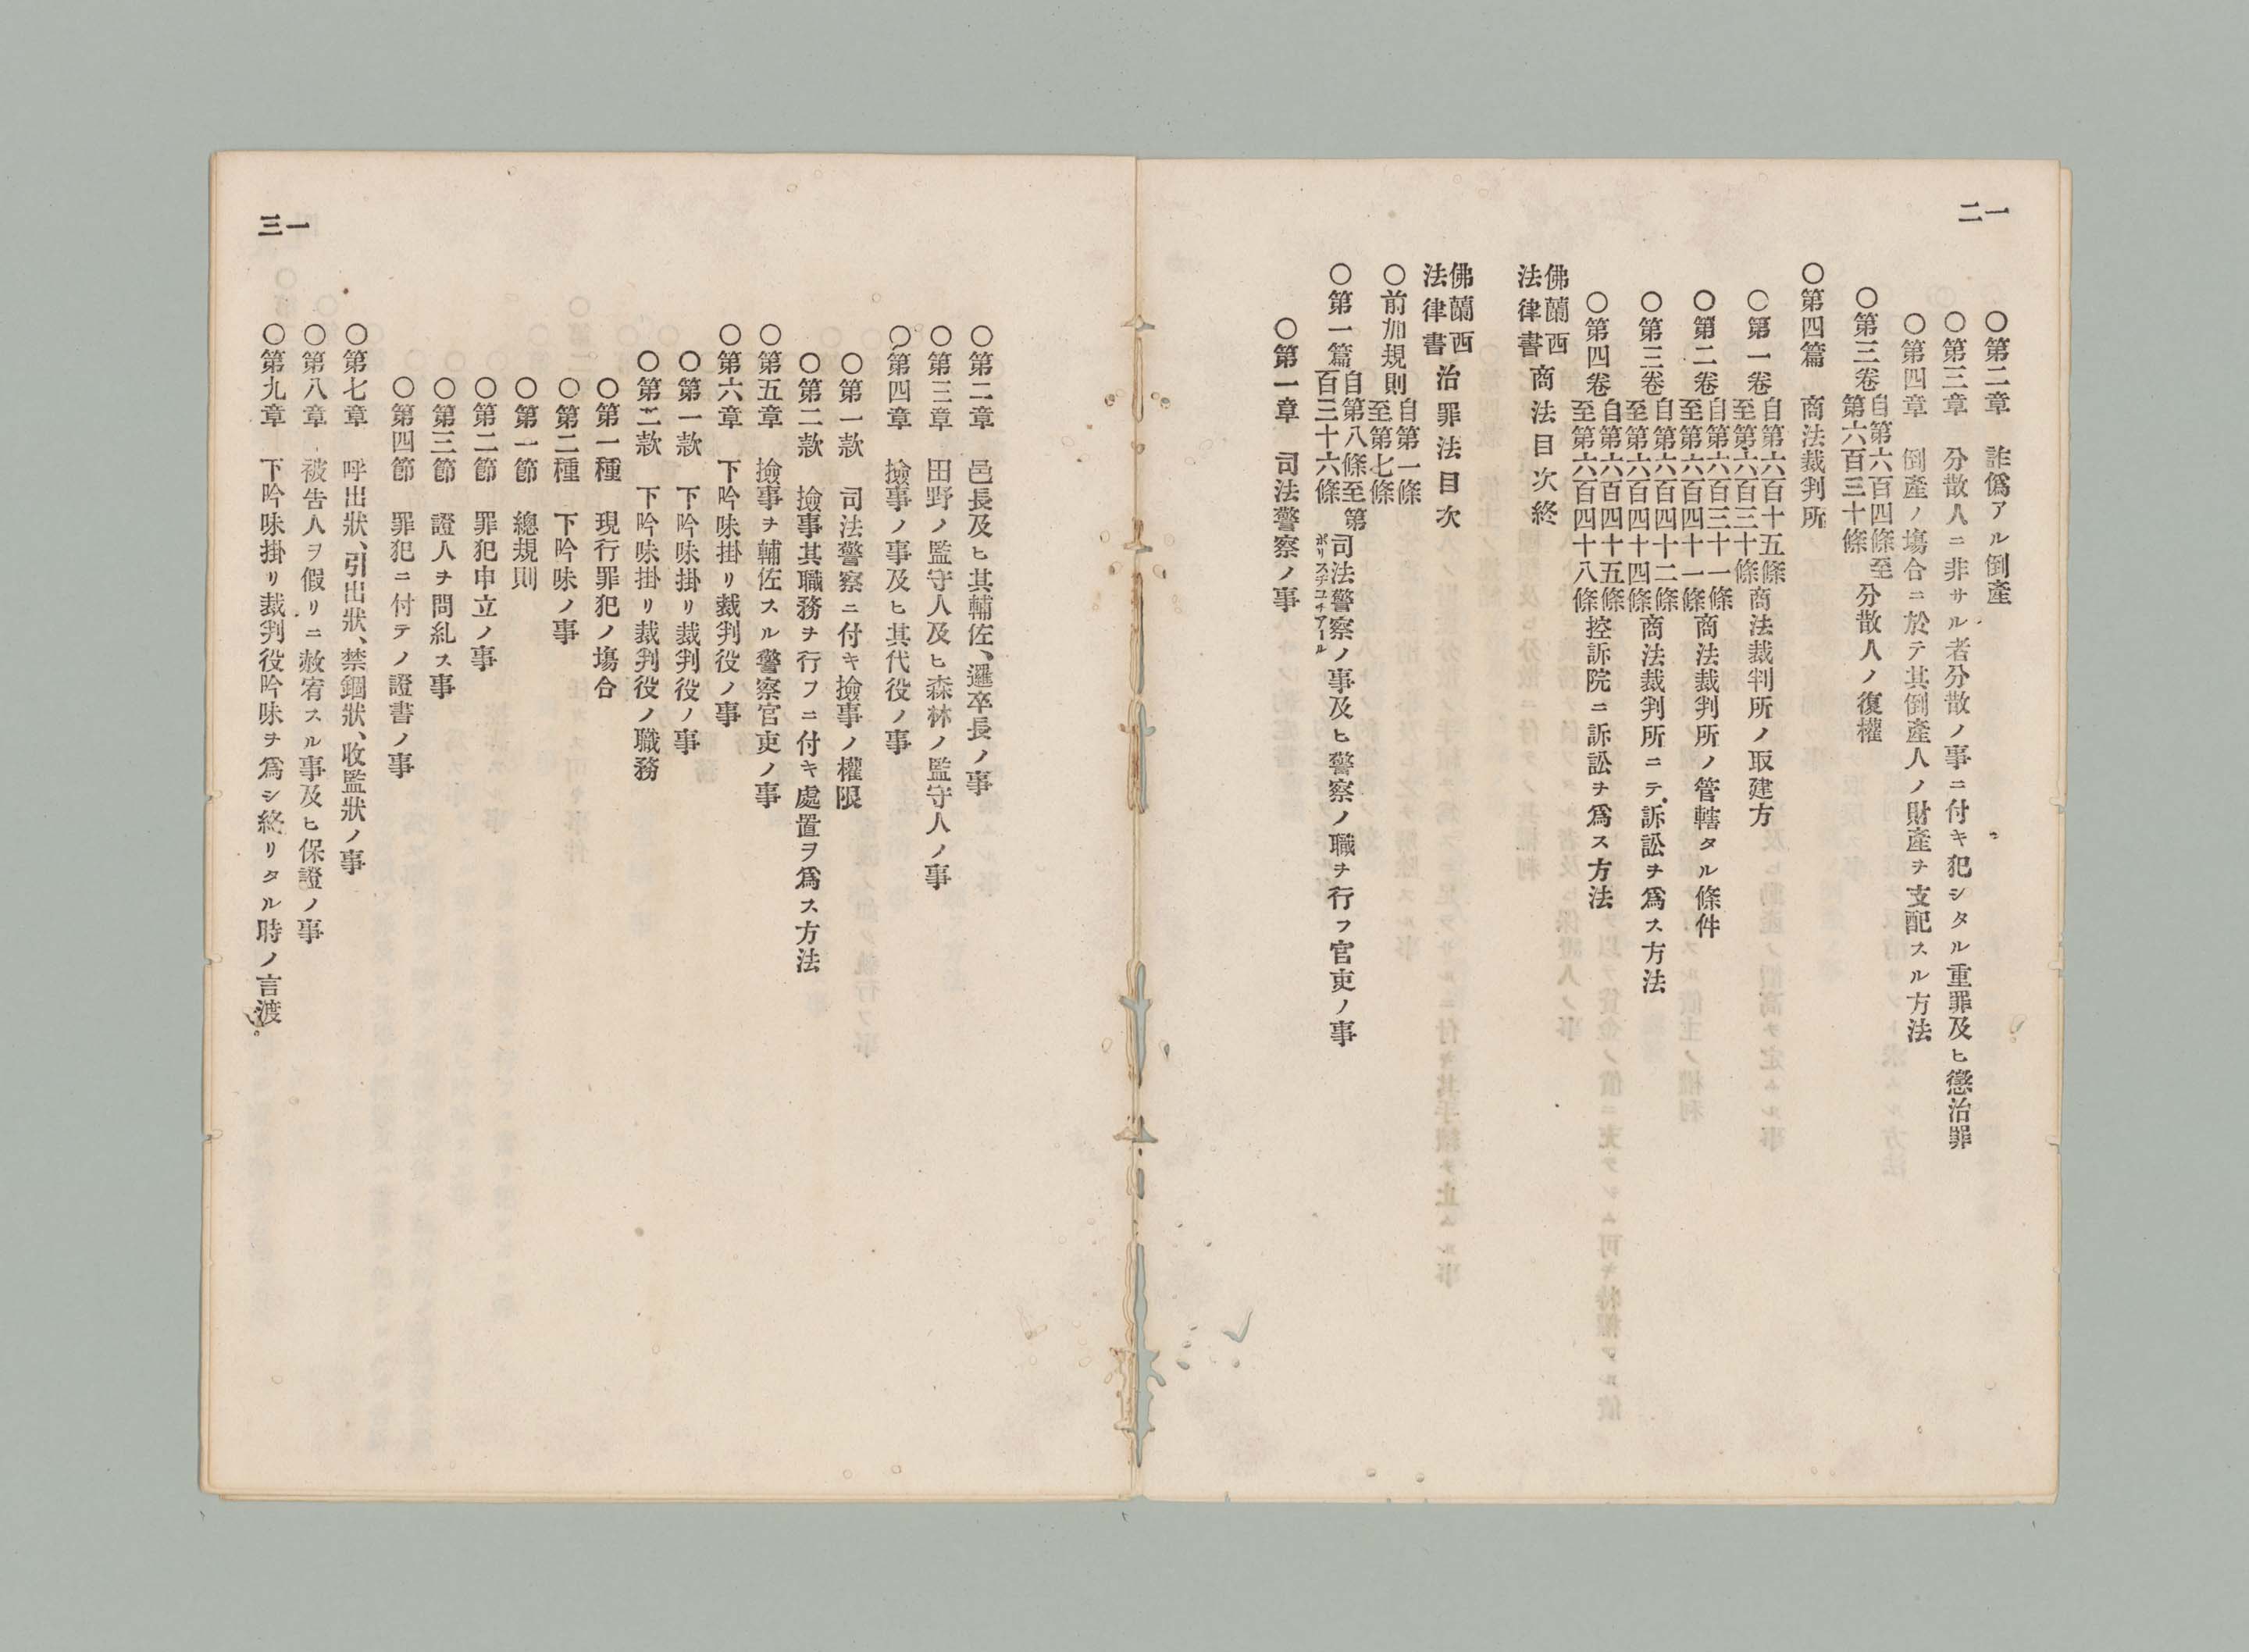 一二
〇第二章　詐僞アル倒產
〇第三章　分散人ニ非サル者分散ノ事ニ付キ犯シタル重罪及ヒ懲治罪
〇第四章　倒產ノ塲合ニ於テ其倒產人ノ財產ヲ支配スル方法
〇第三卷 自第六百四條至第六百三十條 分散人ノ復權
〇第四篇　商法裁判所
〇第一卷 自第六百十五條至第六百三十條 商法裁判所ノ取建方
〇第二卷 自第六百三十一條至第六百四十一條 商法裁判所ノ管轄タル條件
〇第三卷 自第六百四十二條至第六百四十四條 商法裁判所ニテ訴訟ヲ爲ス方法
〇第四卷 自第六百四十五條至第六百四十八條 控訴院ニ訴訟ヲ爲ス方法
佛蘭西法律書 商法目次終
佛蘭西法律書 治罪法目次
〇前加規則 自第一條至第七條
〇第一篇 自第八條至第百三十六條 司法警察ノ事及ヒ警察ノ職ヲ行フ官吏ノ事
〇第一章　司法警察ノ事
一三
〇第二章　邑長及ヒ其輔佐、邏卒長ノ事
〇第三章　田野ノ監守人及ヒ森林ノ監守人ノ事
〇第四章　撿事ノ事及ヒ其代役ノ事
〇第一款　司法警察ニ付キ撿事ノ權限
〇第二款　撿事其職務ヲ行フニ付キ處置ヲ爲ス方法
〇第五章　撿事ヲ輔佐スル警察官吏ノ事
〇第六章　下吟味掛リ裁判役ノ事
〇第一款　下吟味掛リ裁判役ノ事
〇第二款　下吟味掛リ裁判役ノ職務
〇第一種　現行罪犯ノ塲合
〇第二種　下吟味ノ事
〇第一節　總規則
〇第二節　罪犯申立ノ事
〇第三節　證人ヲ問糺ス事
〇第四節　罪犯ニ付テノ證書ノ事
〇第七章　呼出狀、引出狀、禁錮狀、收監狀ノ事
〇第八章　被告人ヲ假リニ赦宥スル事及ヒ保證ノ事
〇第九章　下吟味掛リ裁判役吟味ヲ爲シ終リタル時ノ言渡